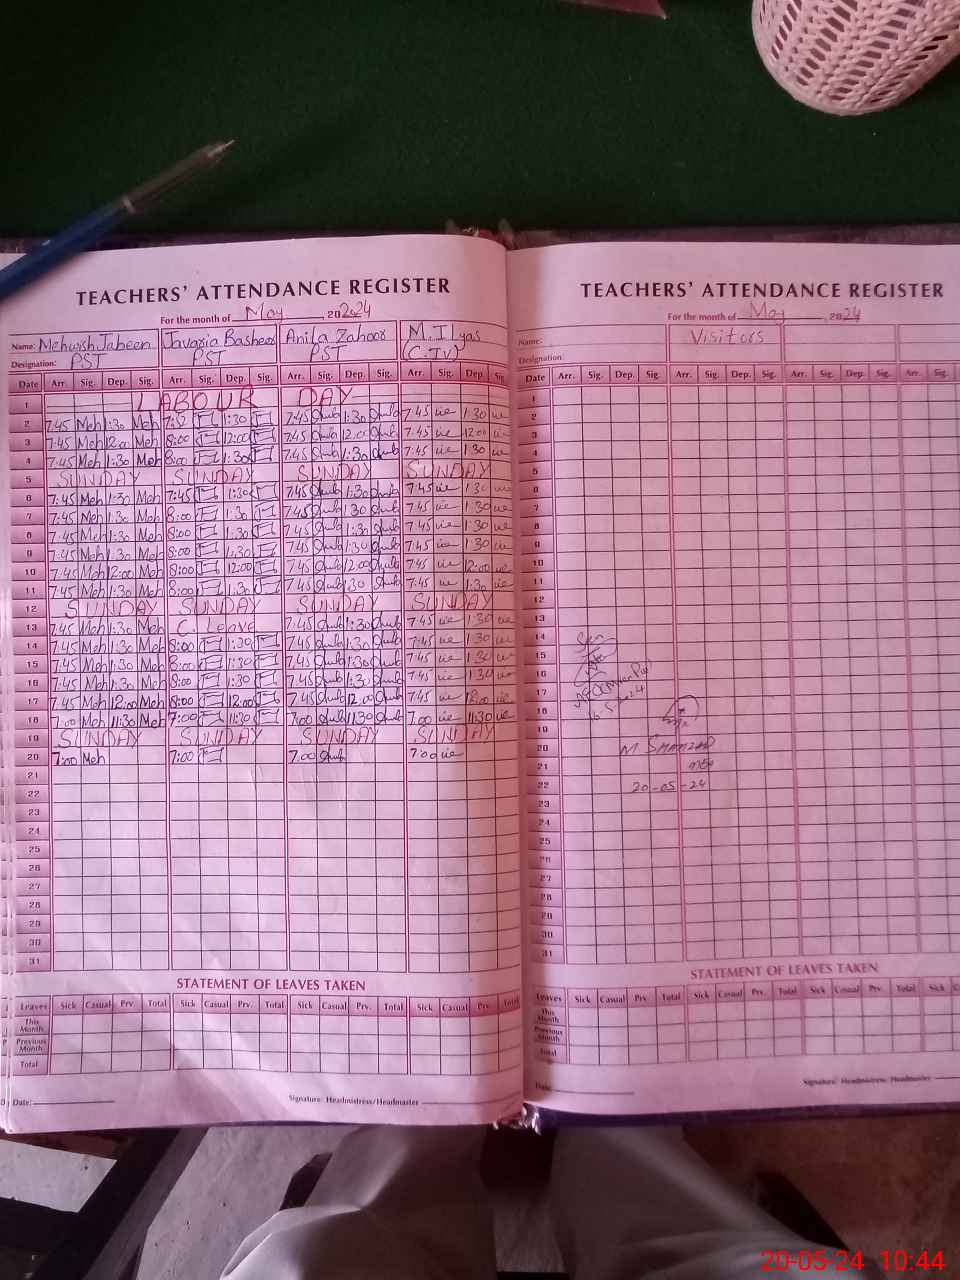 TEACHERS' ATTENDANCE REGISTER
For the month of May, 2024
Name: Mehwish Jabeen Javaria Basheer Anila Zahoor M. Ilyas
Designation: PST PST PST (C.IV)
Date Arr. Sig. Dep. Sig. Arr. Sig. Dep. Sig. Arr. Sig. Dep. Sig. Arr. Sig. Dep. Sig.
1 LABOUR DAY
2 7:45 Meh 1:30 Meh 1:30 7:45 1:30 7:45 1:30
3 7:45 Meh 12:00 Meh 8:00 12:00 7:45 12:00 7:45 12:00
4 7:45 Meh 1:30 Meh 8:00 1:30 7:45 1:30 7:45 1:30
5 SUNDAY SUNDAY SUNDAY SUNDAY
6 7:45 Meh 1:30 Meh 7:45 1:30 7:45 1:30 7:45 1:30
7 7:45 Meh 1:30 Meh 8:00 1:30 7:45 1:30 7:45 1:30
8 7:45 Meh 1:30 Meh 8:00 1:30 7:45 1:30 7:45 1:30
9 7:45 Meh 1:30 Meh 8:00 1:30 7:45 1:30 7:45 1:30
10 7:45 Meh 12:00 Meh 8:00 12:00 7:45 12:00 7:45 12:00
11 7:45 Meh 1:30 Meh 8:00 1:30 7:45 1:30 7:45 1:30
12 SUNDAY SUNDAY SUNDAY SUNDAY
13 7:45 Meh 1:30 Meh C. Leave 7:45 1:30 7:45 1:30
14 7:45 Meh 1:30 Meh 8:00 1:30 7:45 1:30 7:45 1:30
15 7:45 Meh 1:30 Meh 8:00 1:30 7:45 1:30 7:45 1:30
16 7:45 Meh 1:30 Meh 8:00 1:30 7:45 1:30 7:45 1:30
17 7:45 Meh 12:00 Meh 8:00 12:00 7:45 12:00 7:45 12:00
18 7:00 Meh 11:30 Meh 7:00 11:30 7:00 11:30 7:00 11:30
19 SUNDAY SUNDAY SUNDAY SUNDAY
20 7:00 Meh 7:00 7:00 7:00
21
22
23
24
25
26
27
28
29
30
31
STATEMENT OF LEAVES TAKEN
Leaves Sick Casual Prv. Total Sick Casual Prv. Total Sick Casual Prv. Total Sick Casual Prv. Total
This Month
Previous Month
Total
Date:
Signature: Headmistress/Headmaster
TEACHERS' ATTENDANCE REGISTER
For the month of May, 2024
Name: Visitors
Designation:
Date Arr. Sig. Dep. Sig. Arr. Sig. Dep. Sig. Arr. Sig. Dep. Sig. Arr. Sig.
1
2
3
4
5
6
7
8
9
10
11
12
13
14
15
16
17
18
19
20 M Shahzad
21
22 20-05-24
23
24
25
26
27
28
29
30
31
STATEMENT OF LEAVES TAKEN
Leaves Sick Casual Prv. Total Sick Casual Prv. Total Sick Casual Prv. Total Sick
This Month
Previous Month
Total
Date:
Signature: Headmistress/Headmaster
20-05-24 10:44